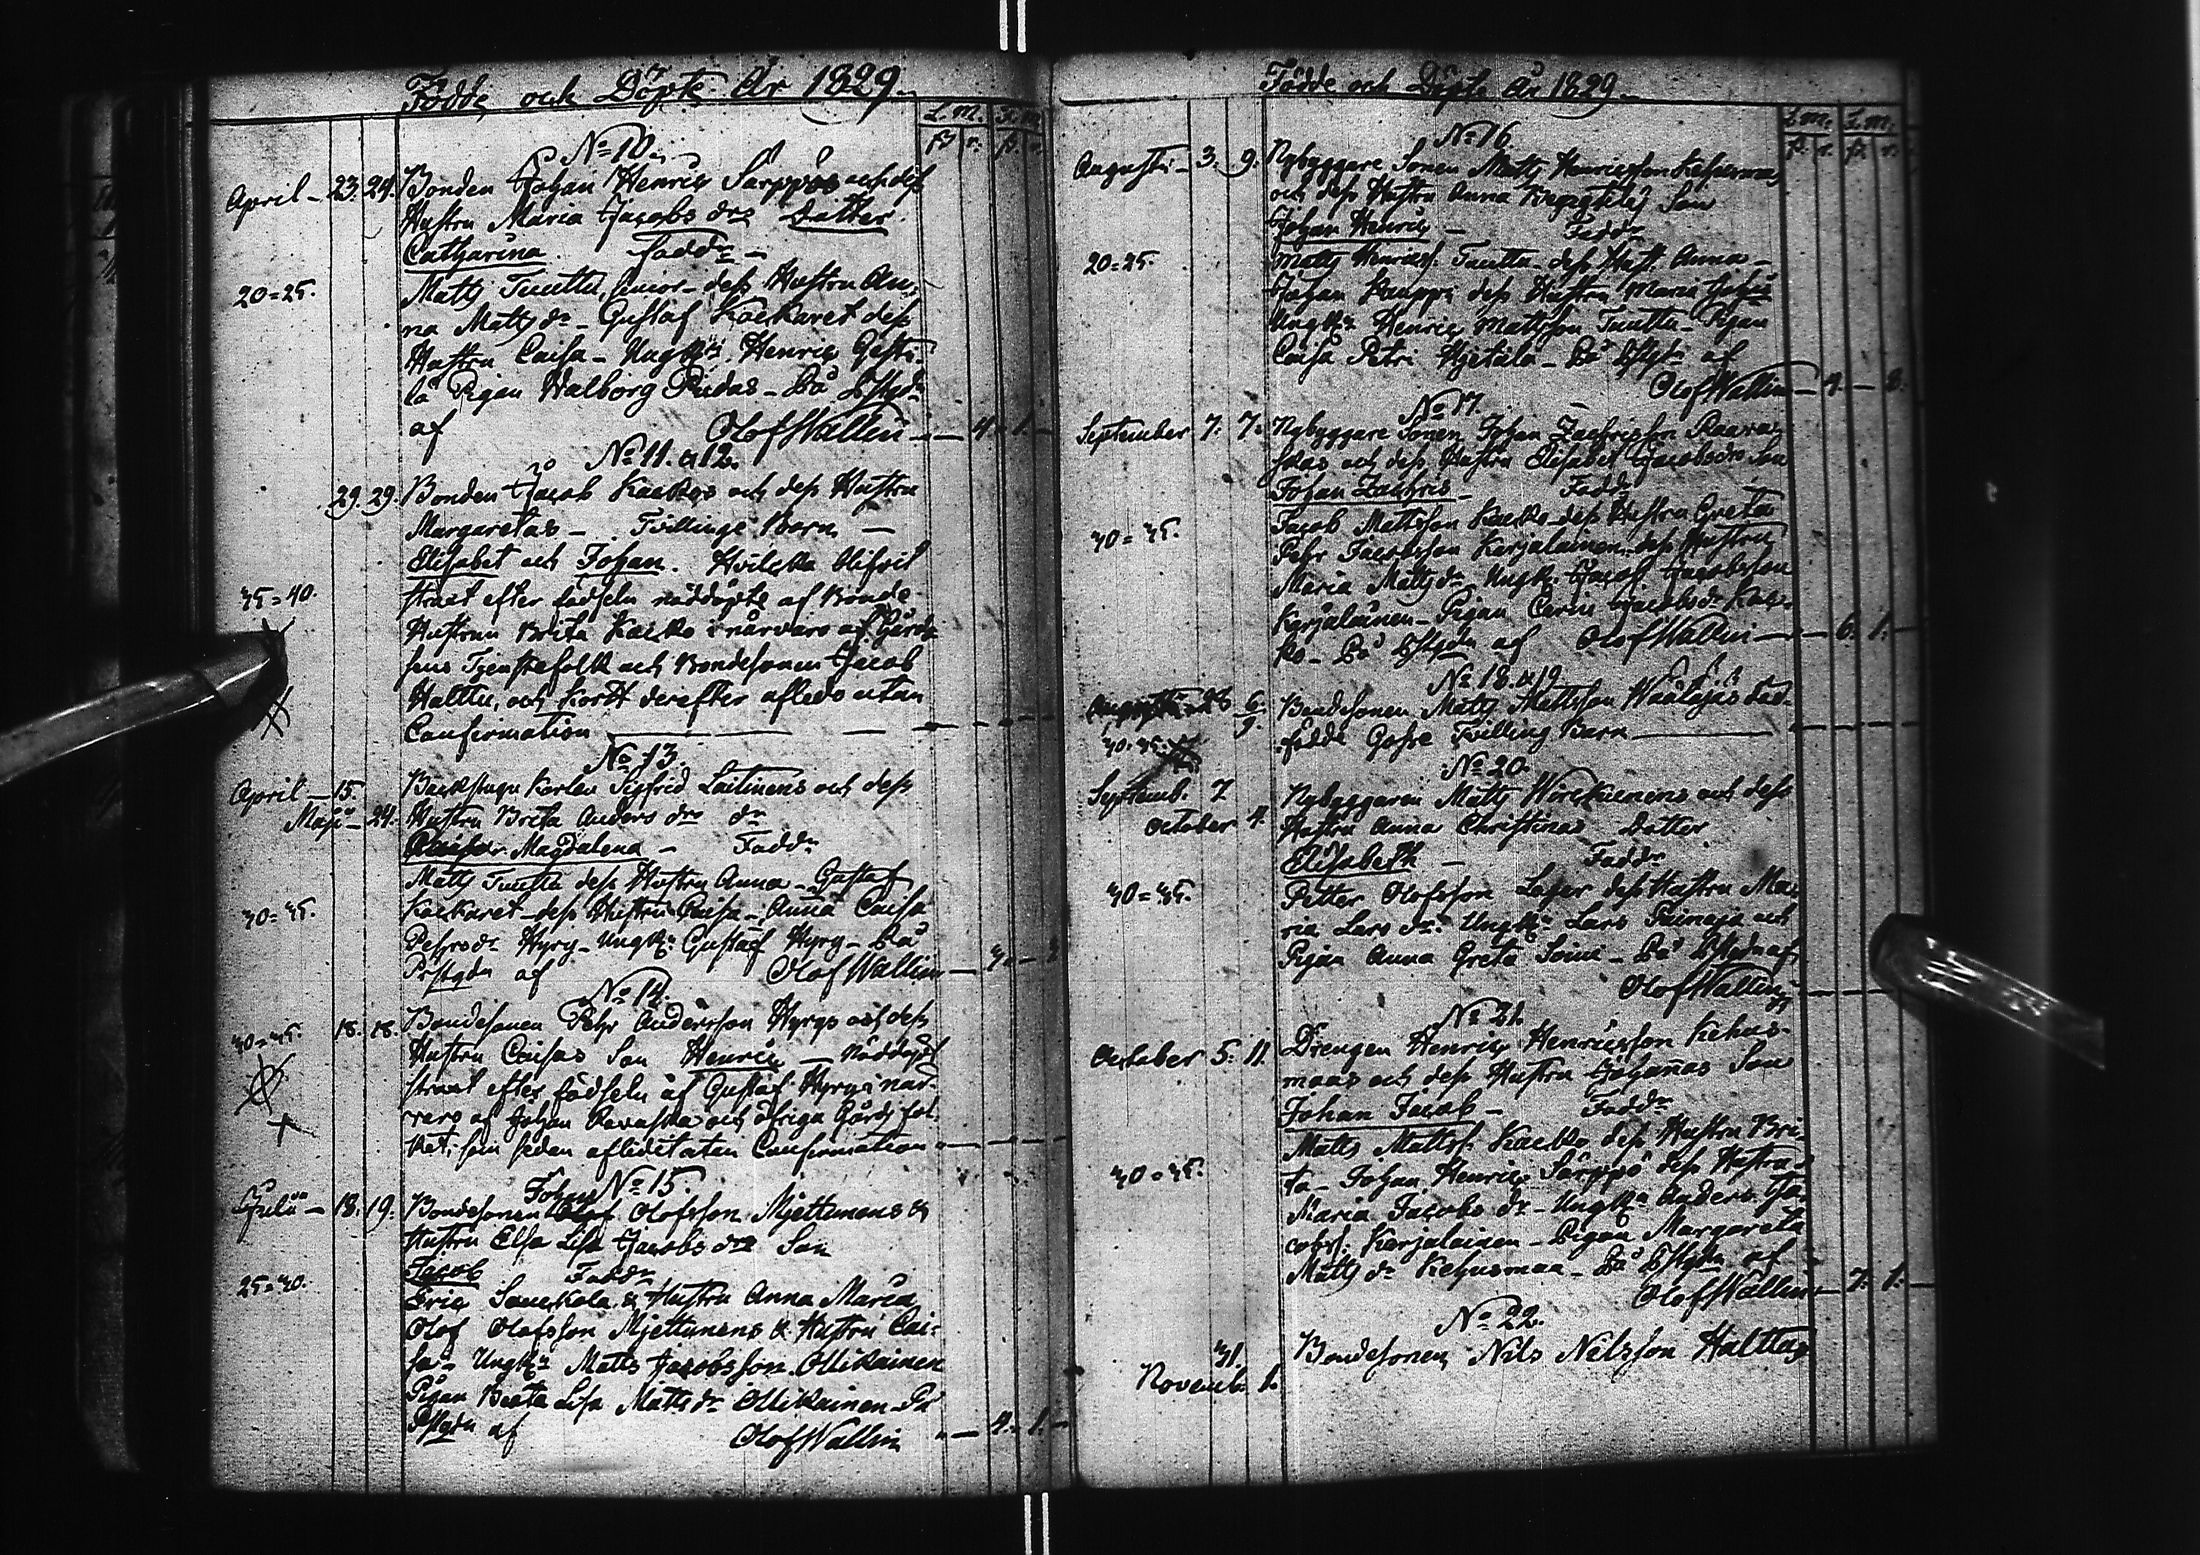 Födde och Döpte År 1829.
L. m. F. m.
p. r. p. r.
No 10.
April – 23. 24. Bonden Johan Henric Särppös och dess
Hustru Maria Jacobs drs Datter
Catharina. Faddr –
20=25. Matts Tuuttu, Junior – dess Hustru An-
na Matts dr – Gustaf Kackaret dess
Hustru Caisa – Ungkn Henric
la Pigan Walborg Rudas – På
af Olof Wallin – 4. – 1. –
No 11. & 12.
29. 29. Bonden Jacob Kackos och dess Hustru
Margaretas – Tvillinge Barn –
Elisabet och Johan. Hvilcka blifvit
35=40. straxt efter födseln nöddöpte af Bonde
Hustrun Brita Kacko i närvaro af Gårds
sens Tjenstefolk och Bondesonen Jacob
Halttu, och kort derefter afledo utan
Confirmation
No 13.
April – 15. Backstugu Karlen Sigfrid Laitinens och dess
Maji – 24. Hustru Brita Anders drs dr
Magdalena – Faddr
Matts Tuuttu dess Hustru Anna – Gustaf
30=35. Kackaret – dess Hustru Caisa – Anna Caisa
Pehrs dr Hyry – Ungkn Gustaf Hyry – På
Prstgdn af Olof Wallin
No 14.
30=35. 18. 18. Bondesonen Pehr Andersson Hyrys och dess
Hustru Caisas Son Henric – Nöddöpt
straxt efter födseln af Gustaf Hyry i när-
varo af Johan Ravaska och öfrige Gårdsfol-
ket, som sedan afled utan Confirmation
No 15.
Johan
Julii – 18. 19. Bondesonen Olofsson Mjettunens &
Hustru Elsa Lisa Jacobs drs Son
Jacob Faddr
25=30. Eric Sauckola & Hustru Anna Maria
Olof Olofsson Mjettunens & Hustru Cai-
sa – Ungkn Matts Jacobsson Ollikainen
Pigan Beata Lisa Matts dr Ollikainen – På
Pstgdn af Olof Wallin – 4. – 1. –
Födde och Döpte År 1829.
L. m. F. m.
p. r. p. r.
No 16
Augusti – 3. 9. Nybyggare Sonen Matts Henricsson Kehusmaas
och dess Hustru Anna Son
Johan Henric – Faddr
20=25. Matts Henricss. Tuuttu – dess Hust. Anna –
Johan dess Hustru Maria
Ungkn Henric Mattsson Tuuttu – Pigan
Caisa Petri Hjetala – På af
Olof Wallin
No 17.
September 7. 7. Nybyggare Sonen Johan Zachrisson
och dess Hustru Elisabet Jacobs drs Son
Johan Zachris – Faddr
30=35. Jacob Mattsson Kacko – dess Hustru Greta
Pehr Jacobsson Karjalainen – dess Hustru
Maria Matts dr – Ungk. Jacob Jacobsson
Karjalainen – Pigan Carin Jacobs dr Kac-
ko – På af Olof Wallin – 6. 1. –
No 18. & 19.
6. 9. Bondesonen Matts Mattsson Wäälajäs död-
30=35. födde Gosse Tvilling Barn
No 20.
Septemb. 7 Nybyggaren Matts Wirckunens och dess
October 4. Hustru Anna Christinas Dotter
Elisabeth – Faddr
30=35. Petter Olofsson Lager dess Hustru Ma-
ria Lars dr – Ungkn Lars och
Pigan Anna Greta Soini – På af
Olof Wallin
No 21.
October 5. 11. Drengen Henric Henricsson Kehus-
maas och dess Hustru Johannas Son
Johan Jacob – Faddr
Matts Mattss. Kacko dess Hustru Bri-
30=35. ta – Johan Henric Särppö dess Hustru
Maria Jacobs dr – Ungkn Anders Ja-
cobss. Karjalainen – Pigan Margareta
Matts dr Kehusmaa – På af
Olof Wallin – 7. 1. –
No 22.
31. Bondesonen Nils Nilsson Halttus
Novemb. 1.